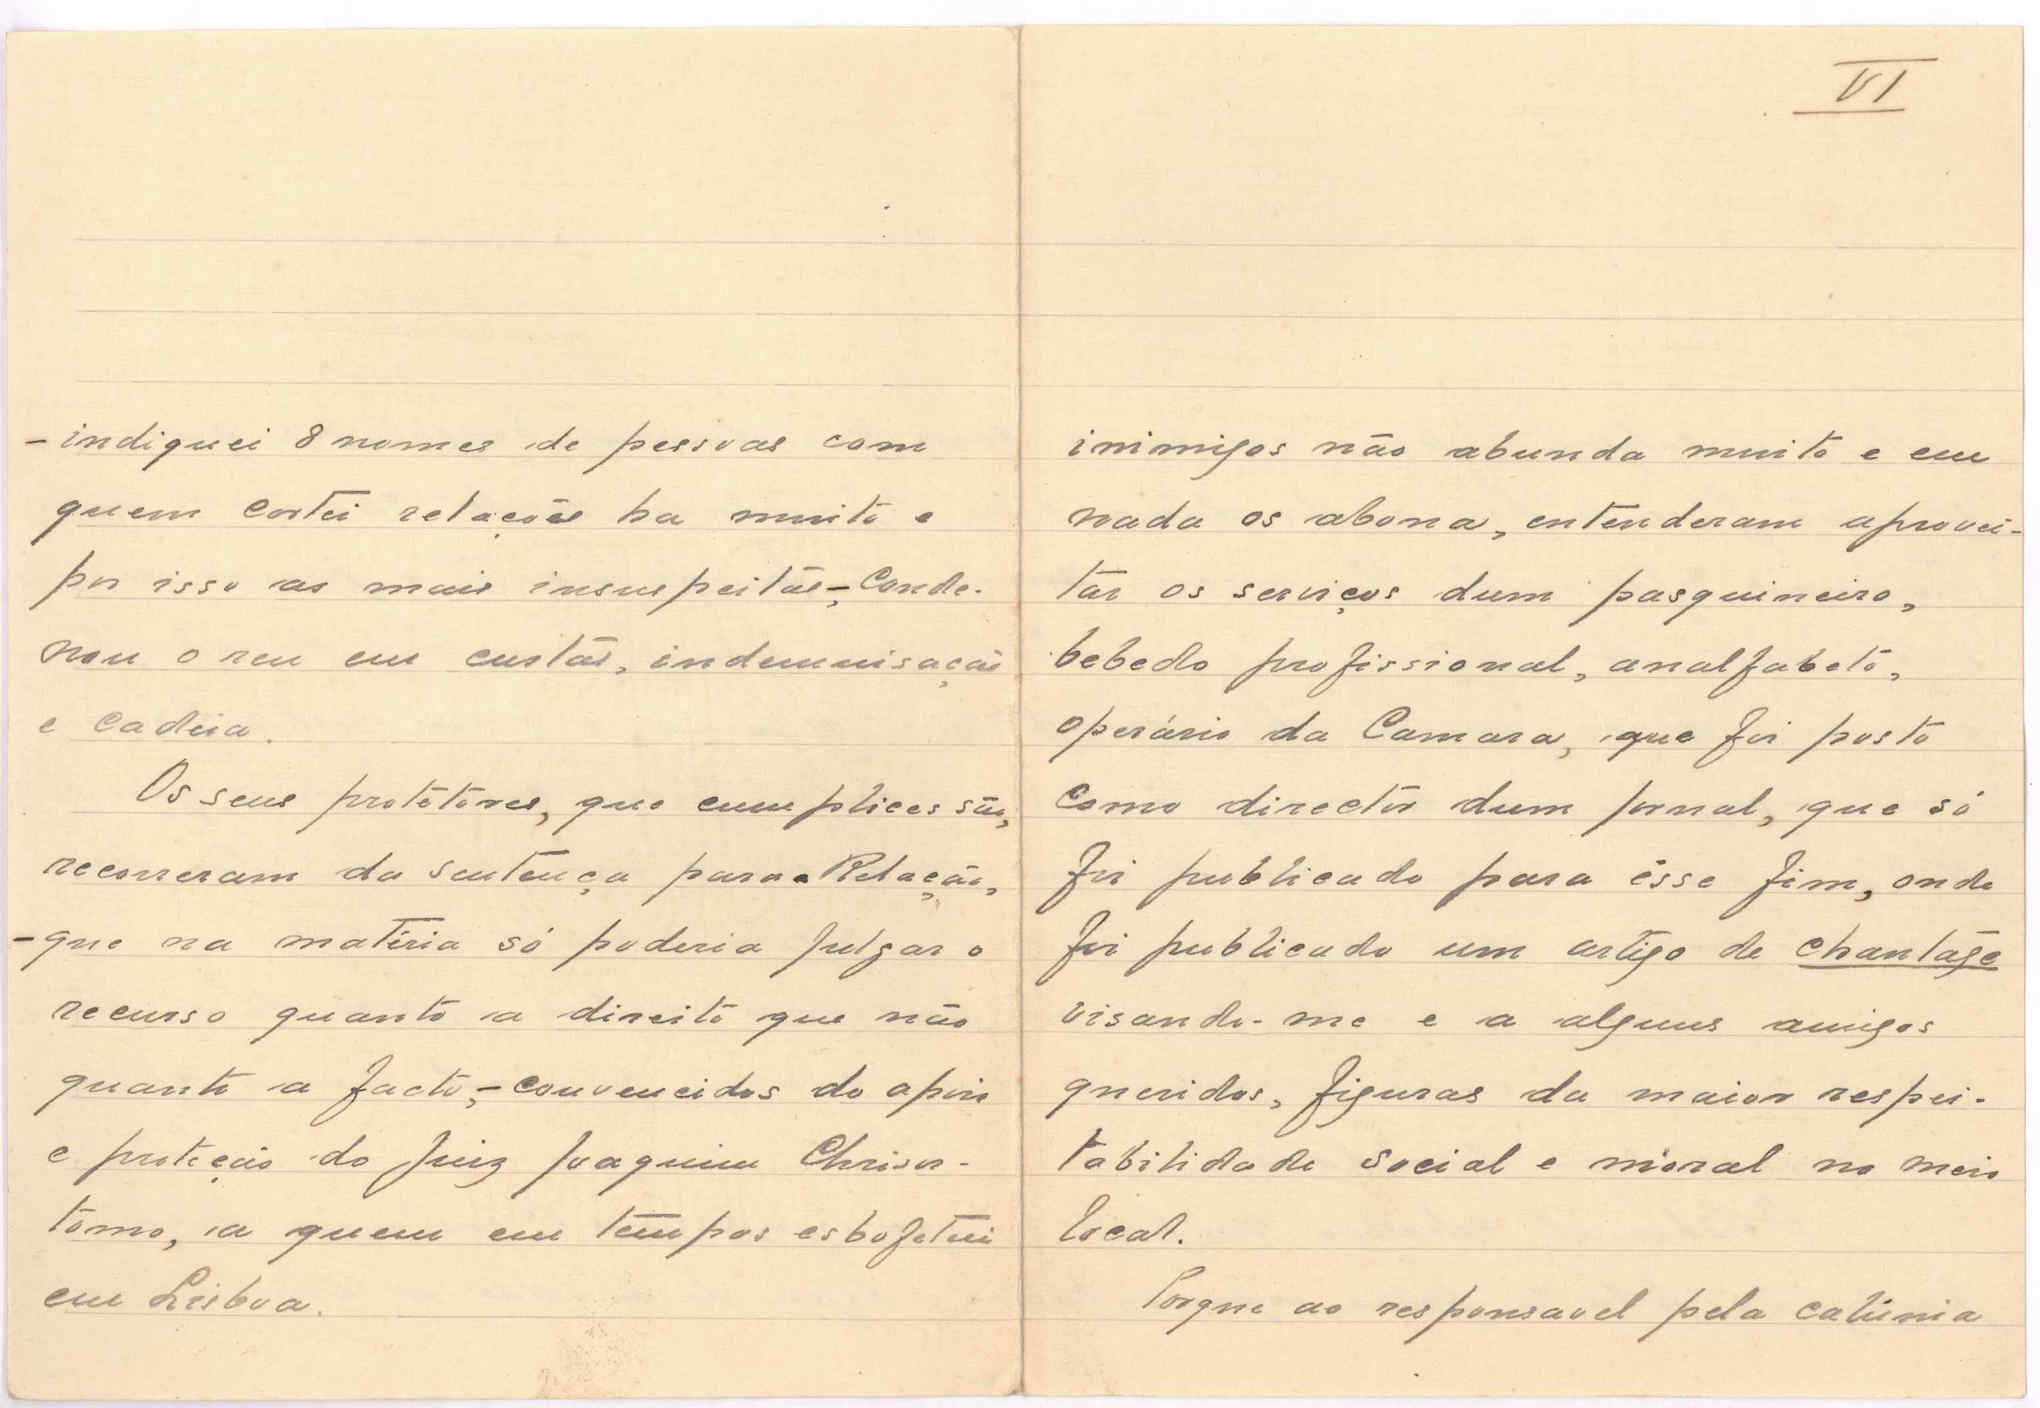 - indiquei 8 nomes de pessoas com
quem cortei relações ha muito e
por isso as mais insuspeitas -, conde-
nou o reu em custas, indemnisação
e cadeia.
Os seus protetores, que cumplices são,
recorreram da sentença para a Relação,
- que na matéria só poderia julgar o
recurso quanto a direito que não
quanto a facto, - convencidos do apoio
e proteção do juiz Joaquim Chrisos-
tomo, a quem em tempos esbofeteei
em Lisboa.
VI
inimigos não abunda muito e em
nada os abona, entenderam aprovei-
tar os serviços dum pasquineiro,
bebedo profissional, analfabeto,
operário da Camara, que foi posto
como director dum jornal, que só
foi publicado para êsse fim, onde
foi publicado um artigo de chantage
visando-me e a alguns amigos
queridos, figuras da maior respei-
tabilidade social e moral no meio
local.
Porque ao responsavel pela calúnia